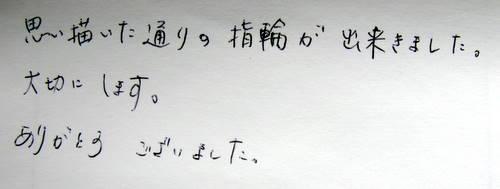 思い描いた通りの指輪が出来きました。
大切にします。
ありがとうございました。